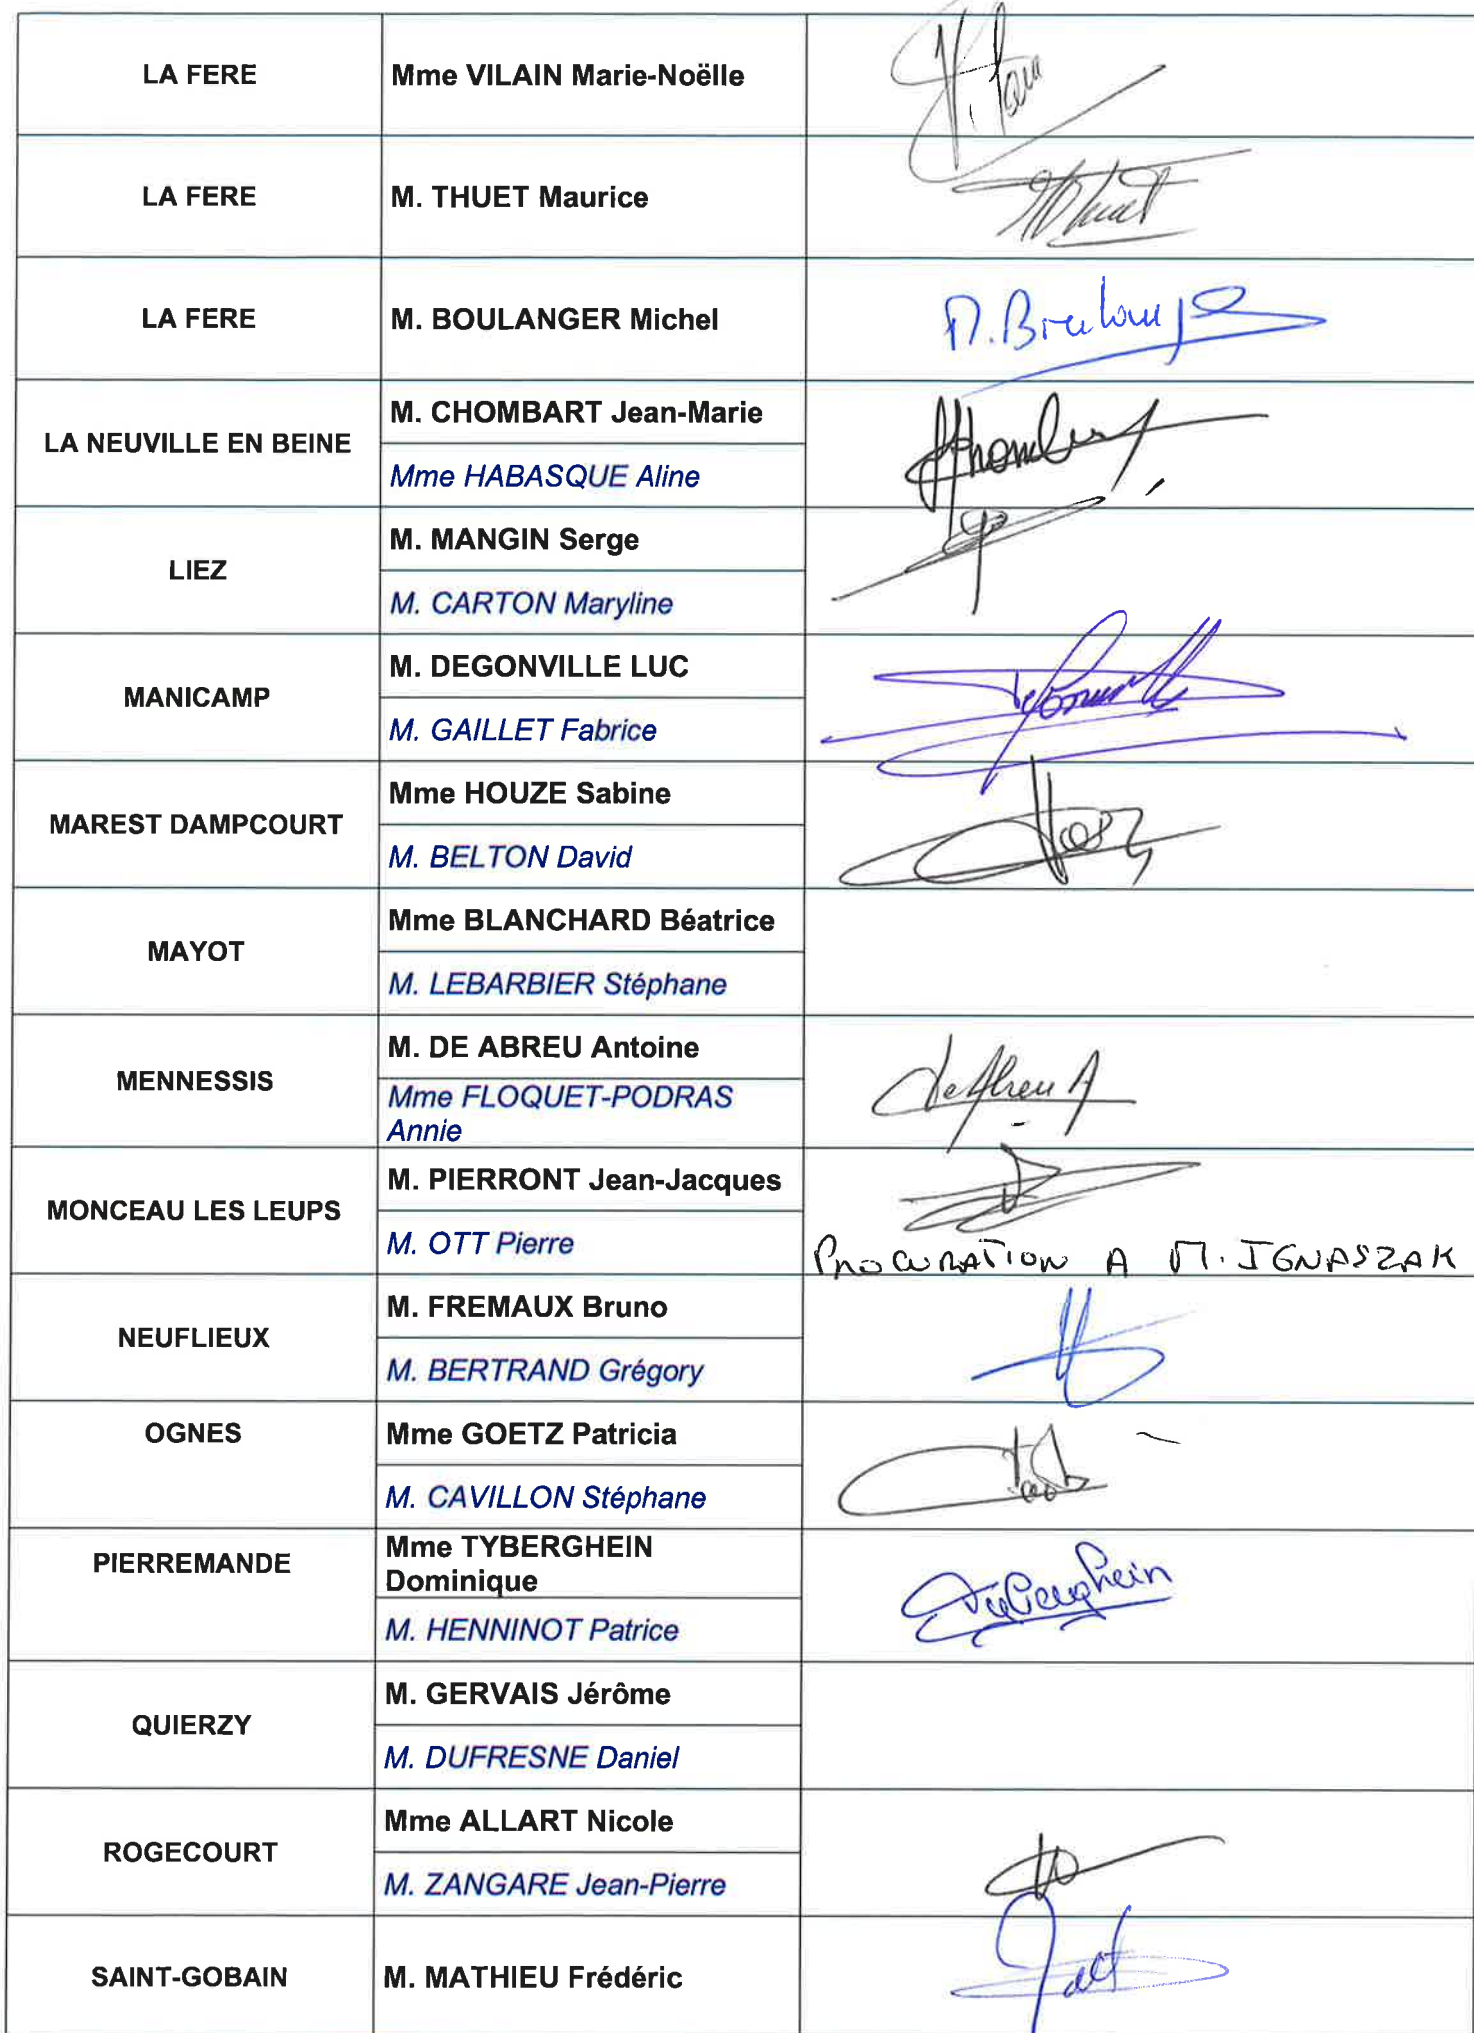 LA FERE
Mme VILAIN Marie-Noëlle
LA FERE
M. THUET Maurice
Thuet
LA FERE
M. BOULANGER Michel
LA NEUVILLE EN BEINE
M. CHOMBART Jean-Marie
Mme HABASQUE Aline
LIEZ
M. MANGIN Serge
M. CARTON Maryline
MANICAMP
M. DEGONVILLE LUC
M. GAILLET Fabrice
MAREST DAMPCOURT
Mme HOUZE Sabine
M. BELTON David
MAYOT
Mme BLANCHARD Béatrice
M. LEBARBIER Stéphane
MENNESSIS
M. DE ABREU Antoine
Mme FLOQUET-PODRAS
Annie
De Abreu A
MONCEAU LES LEUPS
M. PIERRONT Jean-Jacques
M. OTT Pierre
PROCURATION A M. IGNASZAK
NEUFLIEUX
M. FREMAUX Bruno
M. BERTRAND Grégory
OGNES
Mme GOETZ Patricia
M. CAVILLON Stéphane
PIERREMANDE
Mme TYBERGHEIN
Dominique
M. HENNINOT Patrice
Tyberghein
QUIERZY
M. GERVAIS Jérôme
M. DUFRESNE Daniel
ROGECOURT
Mme ALLART Nicole
M. ZANGARE Jean-Pierre
SAINT-GOBAIN
M. MATHIEU Frédéric